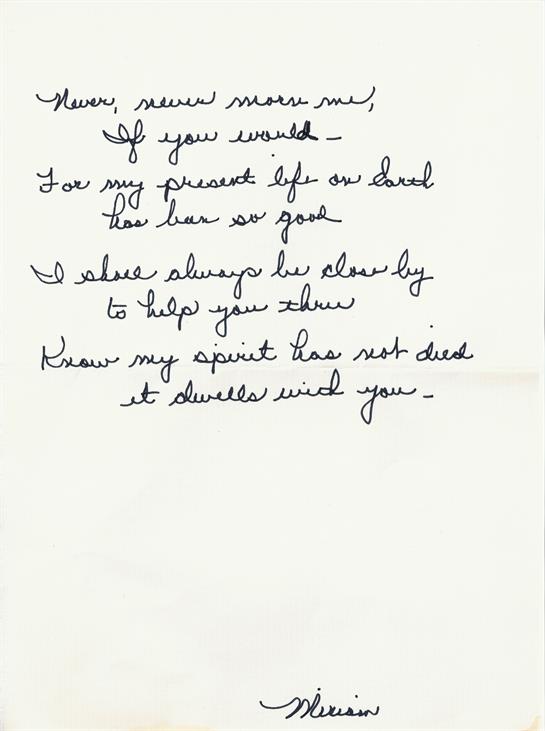 Never, never morn me,
If you would -
For my present life on Earth
has been so good
I shall always be close by
to help you thru
Know my spirit has not died
it dwells with you -
Miriam